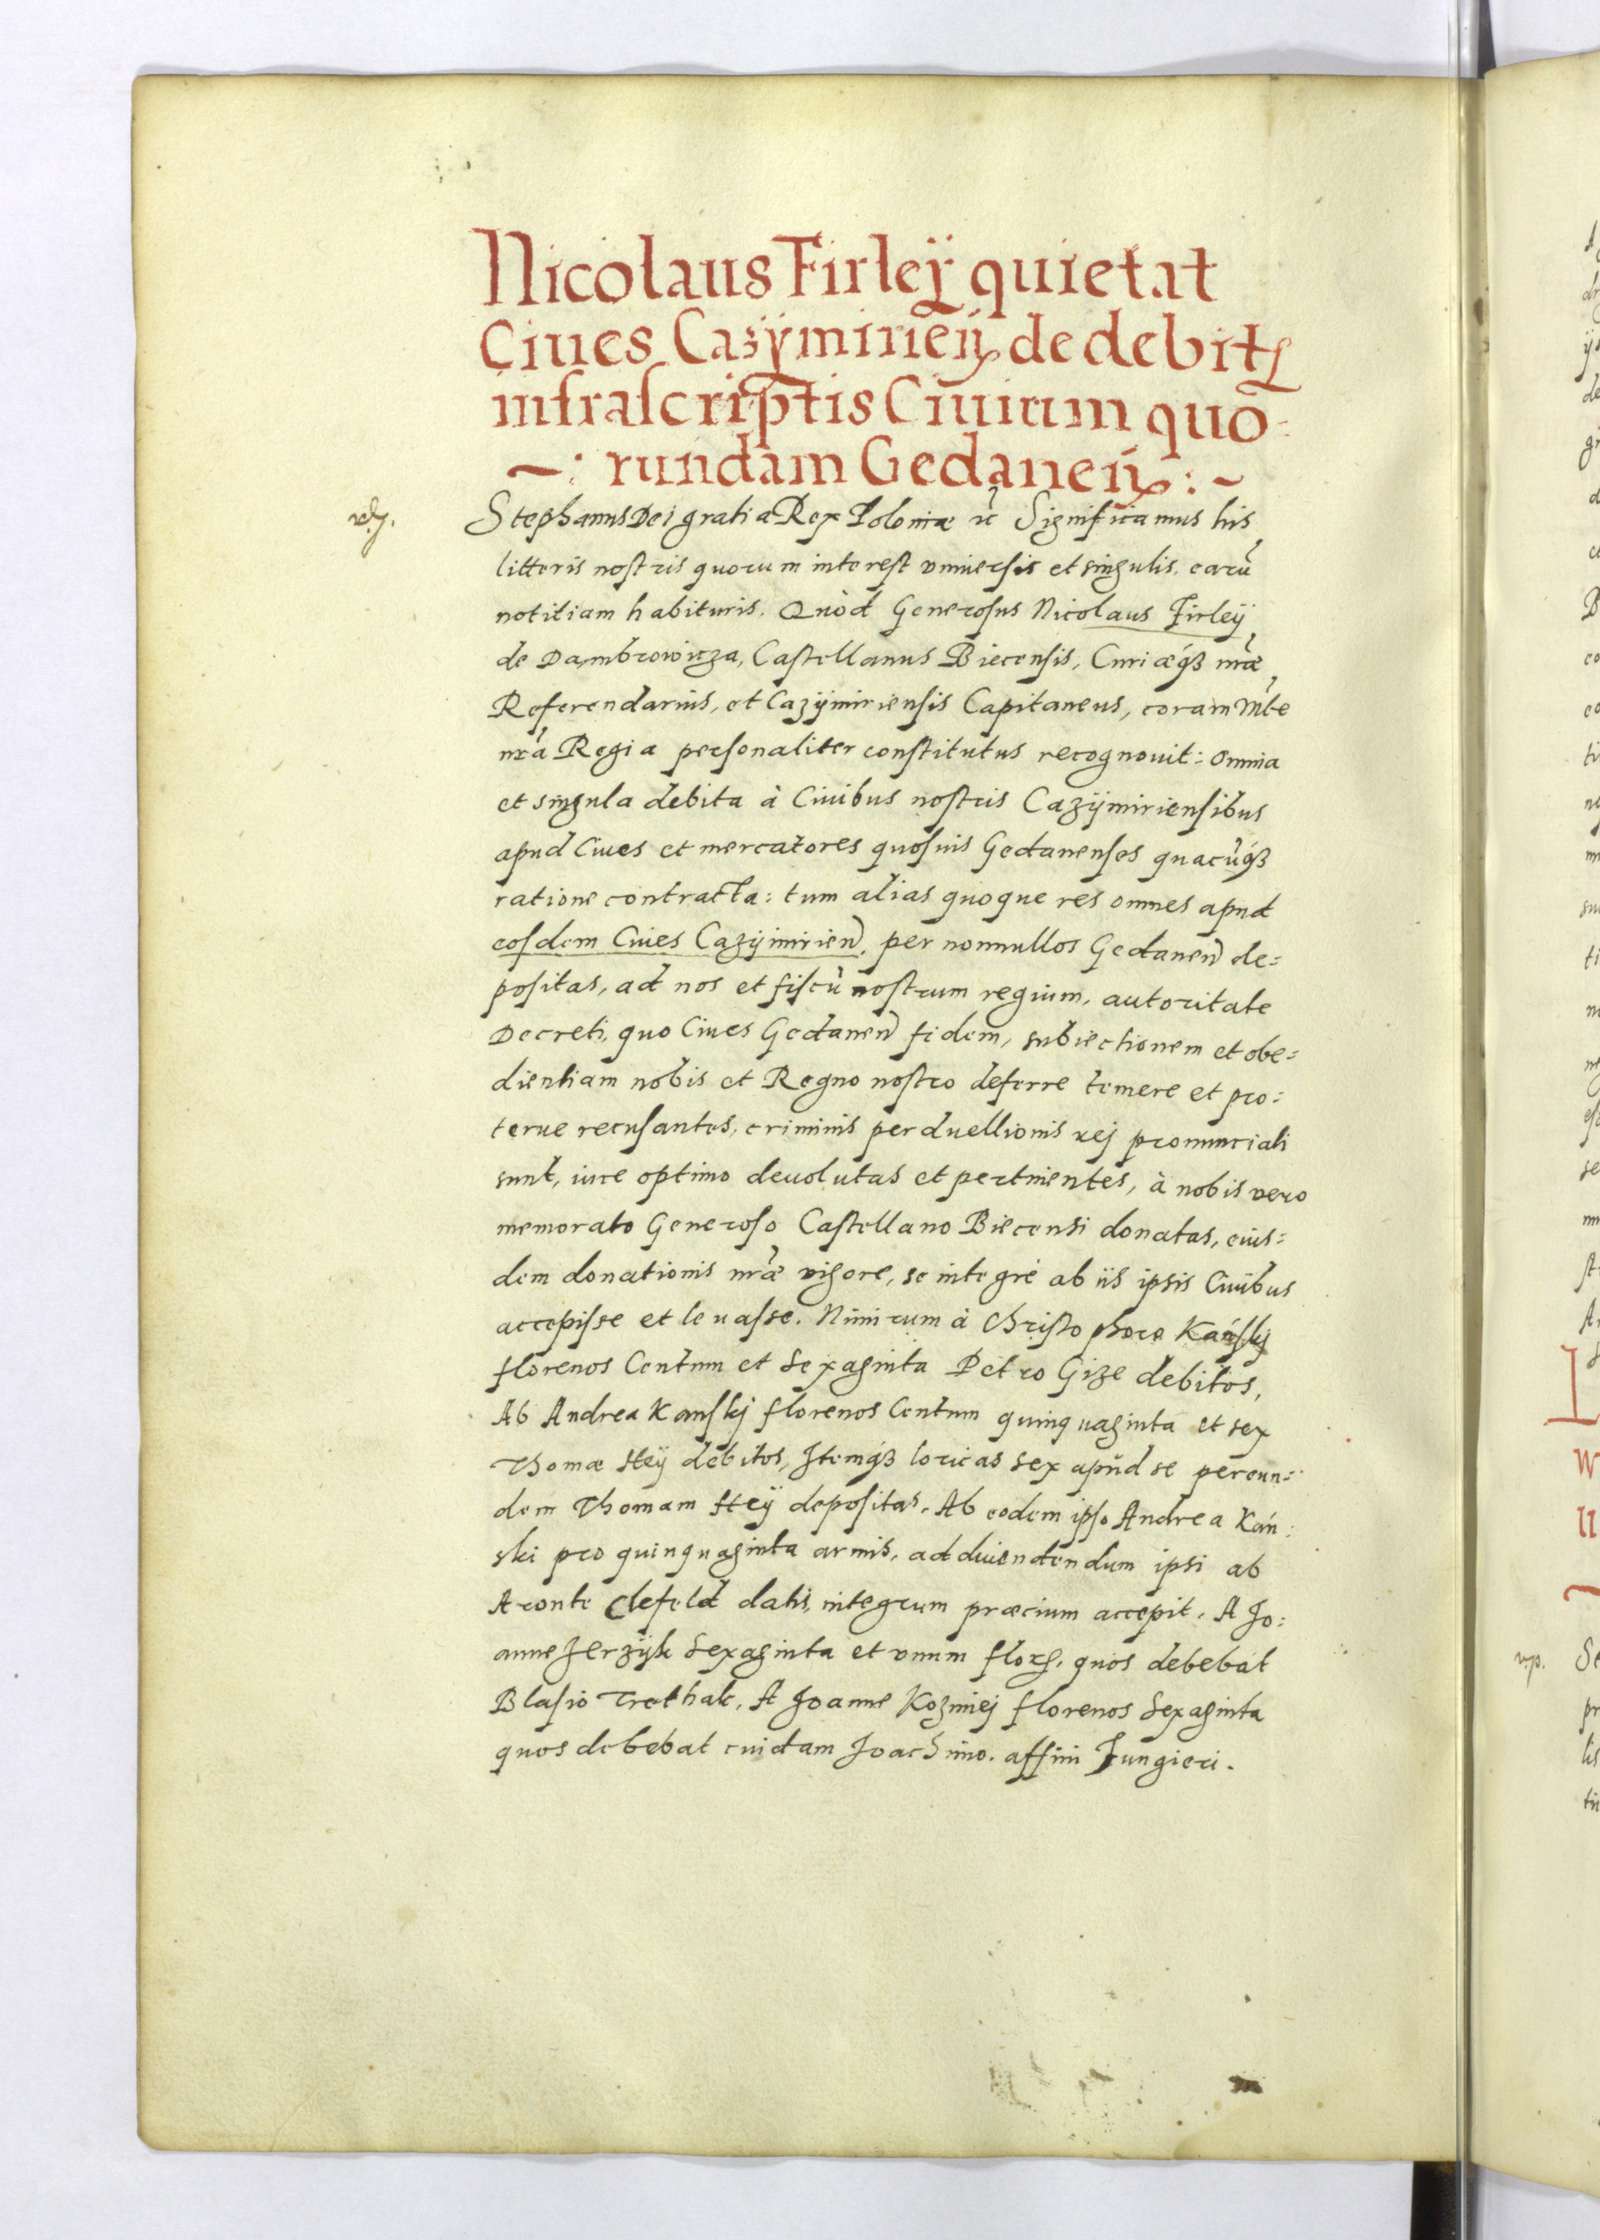 Nicolaus Firleÿ quietat
Ciues Cazÿmirień de debitꝭ
infrascriptis Ciuium quo-
~: rundam Gedaneń :~
Stephanus Dei gratia Rex Poloniæ ꝛc̃ Significamus his
litteris nostris quorum interest vniuersis et singulis, earũ
notitiam habituris. Quòd Generosus Nicolaus Firleÿ
de Dambrowicza, Castellanus Biecensis, Curiæq́ꝫ nr̃æ
Referendarius, et Cazÿmiriensis Capitaneus, coram Mt̃e
nr̃a Regia personaliter constitutus recognouit: omnia
et singula debita à Ciuibus nostris Cazÿmiriensibus
apud Ciues et mercatores quosuis Gedanenses quacũq́ꝫ
ratione contracta: tum alias quoque res omnes apud
eosdem Ciues Cazÿmirień, per nonnullos Gedaneń de=
positas, ad nos et fiscũ nostrum regium, autoritate
Decreti, quo Ciues Gedaneń fidem, subiectionem et obe=
dientiam nobis et Regno nostro deferre temere et pro=
terue recusantes, criminis perduellionis rej pronunciati
sunt, iure optimo deuolutas et pertinentes, à nobis vero
memorato Generoso Castellano Biecensi donatas, eius=
dem donationis nr̃æ vigore, se integrè ab iis ipsis Ciuibus
accepisse et leuasse. Nimirum à Christophoro Kański
florenos Centum et Sexaginta Petro Gize debitos,
Ab Andrea Kanskj florenos Centum quinquaginta et sex
Thomæ Heÿ debitos, Itemq́ꝫ loricas sex apud se per eun=
dem Thomam Heÿ depositas. Ab eodem ipso Andrea Kań:
ski pro quinquaginta armis, ad diuendendum ipsi ab
Aronte Clefeld datis, integrum præcium accepit. A Jo:
anne Jerzÿk Sexaginta et vnum florꝭ. quos debebat
Blasio Trethak. A Joanne Kozmiej florenos Sexaginta
quos debebat cuidam Joachimo. affini Jungieri.